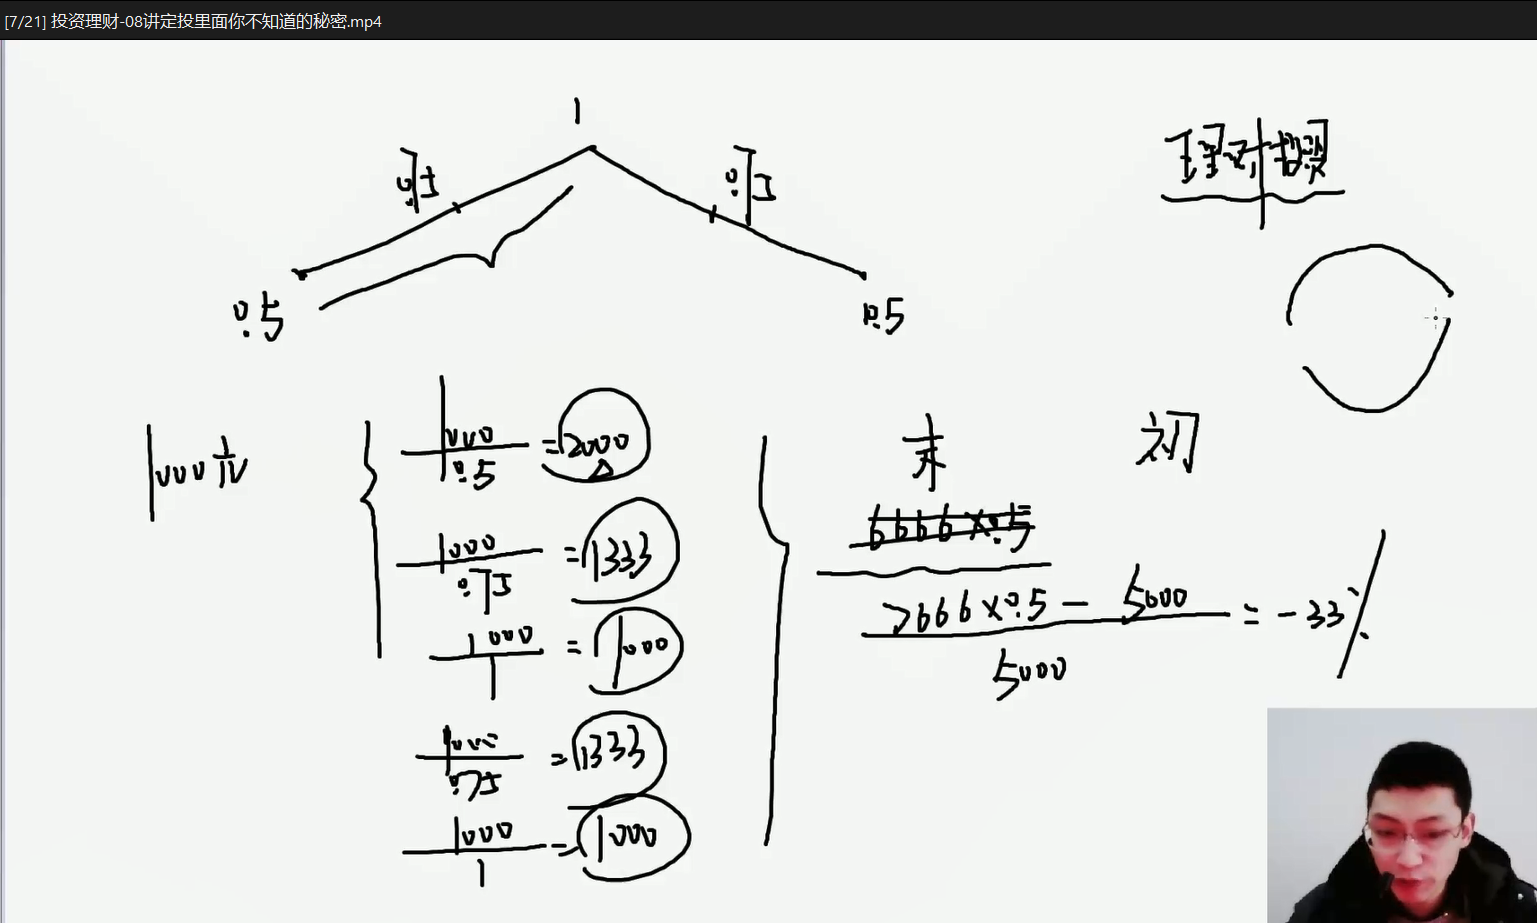 [7/21] 投资理财-08讲定投里面你不知道的秘密.mp4
1
0.75
0.75
理财 投资
0.5
0.5
1000元
1000
0.5
=2000
1000
0.75
=1333
1000
1
=1000
1000
0.75
=1333
1000
1
=1000
末 初
6666×0.5
7666×0.5 - 5000
5000
= -33%